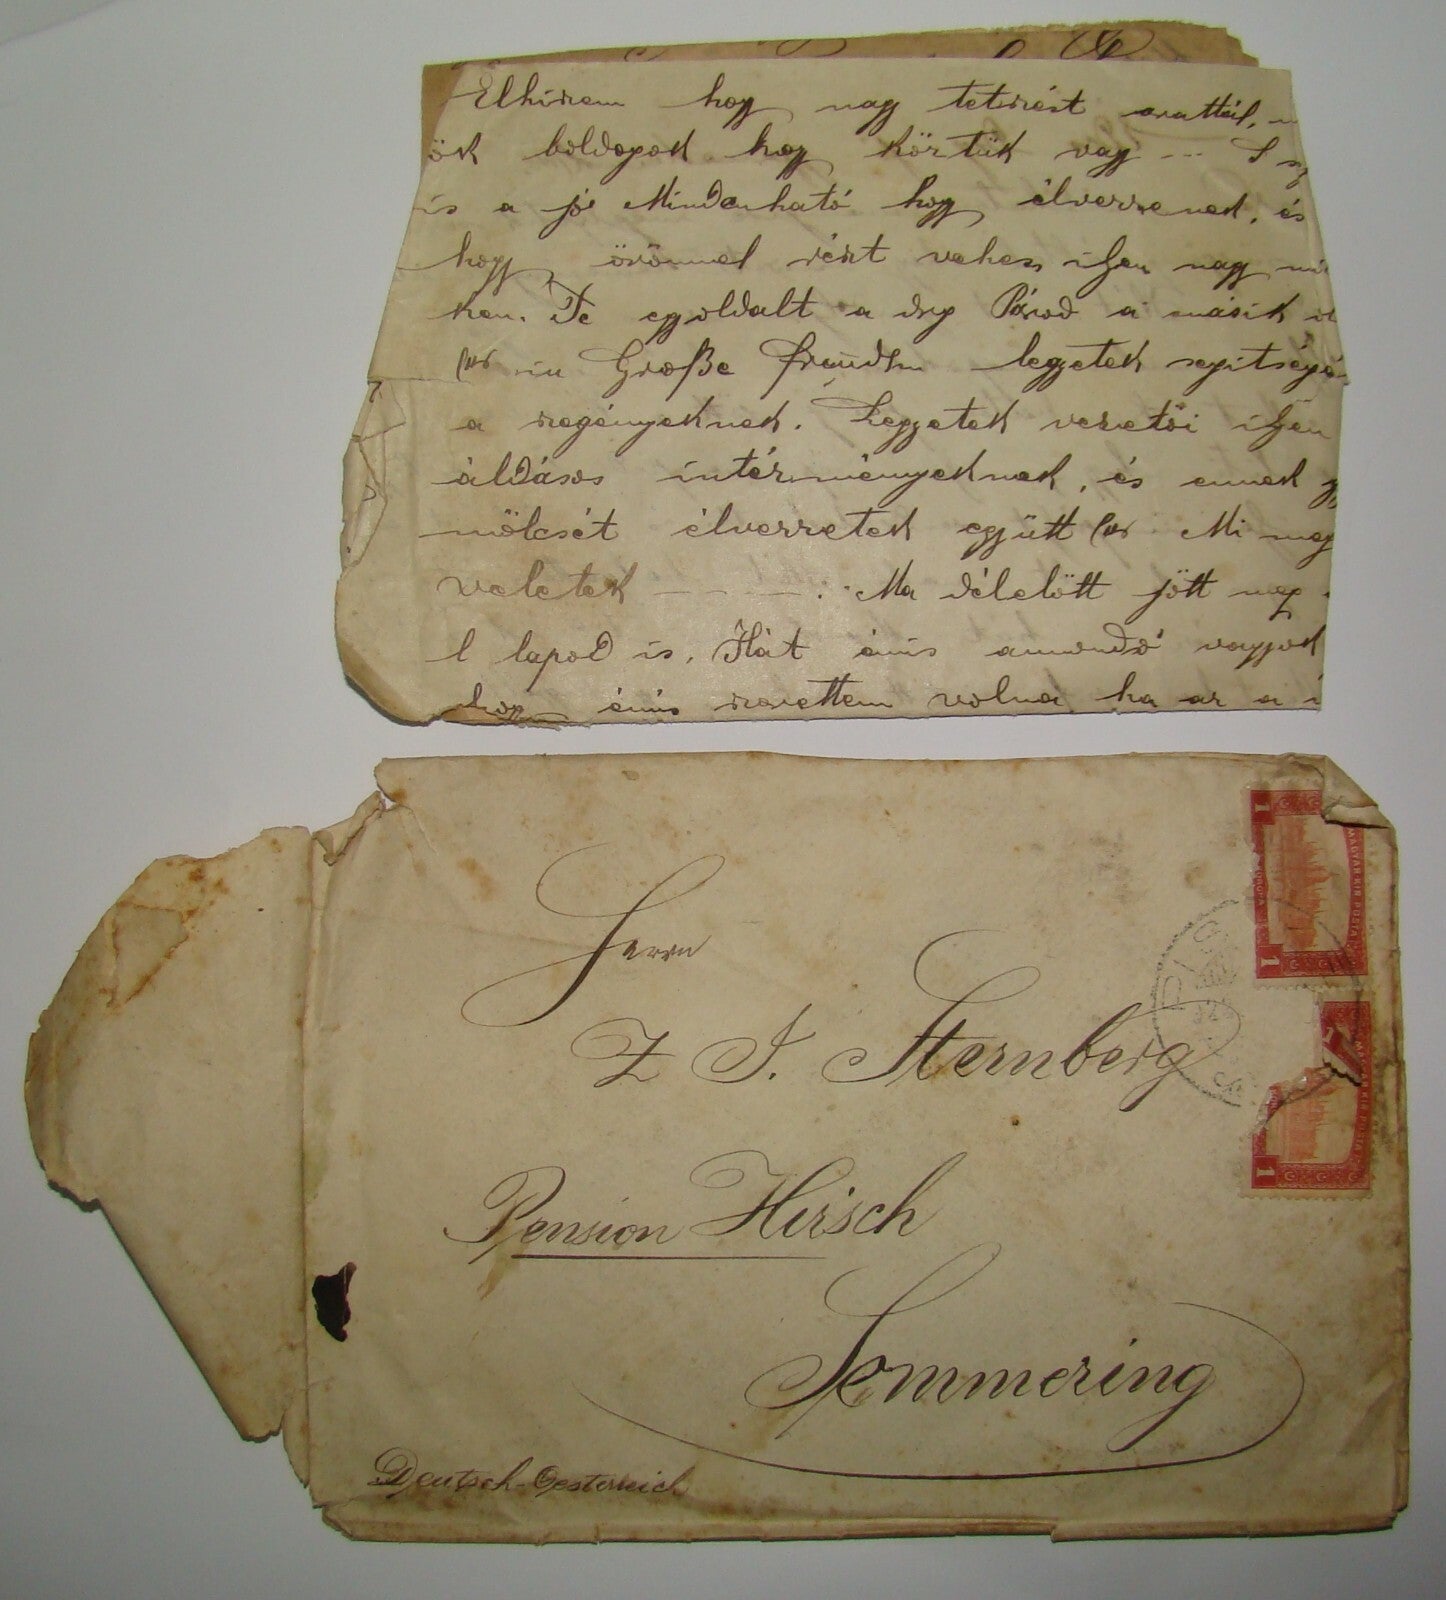 Elhiszem hogy nagy tetszést arattál,
ők boldogok hogy köztük vagy ---
is a jó Mindenható hogy élvezzenek, és
hogy örömmel részt vehess ilyen nagy
ken. Te egyoldalt a drg Párod a másik
in Große Freuden legyetek segítségé
a szegényeknek. Legyetek vezetői ilyen
áldásos intézményeknek, és ennek gy
mölcsét élvezzetek együtt Mi meg
veletek - - - - Ma délelőtt jött meg
l lapod is. Hát énis amondó vagyok
hogy énis szerettem volna ha az a
Herrn
Z J. Sternberg
Pension Hirsch
Semmering
Deutsch-Oesterreich
1
MAGYAR KIR POSTA
1
MAGYAR KIR POSTA
1